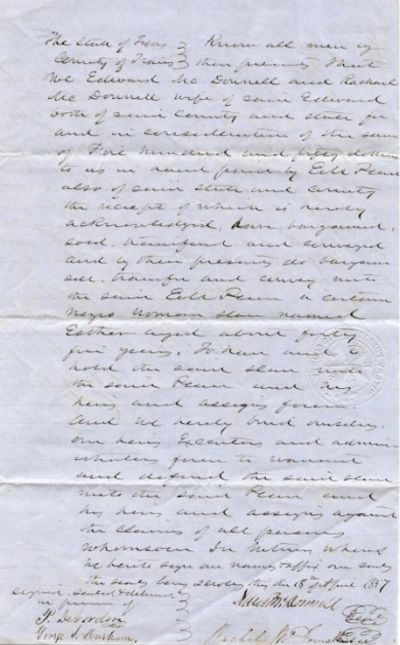 The State of Texas } Know all men by
County of Travis } these presents that
We Edward McDonnell and Rachael
McDonnell wife of said Edward
both of said county and state for
and in consideration of the sum
of Five hundred and fifty dollars
to us in hand paid by E M Pease
also of said state and county
the receipt of which is hereby
acknowledged, have bargained,
sold, transferred and conveyed
and by these presents do bargain
sell, transfer and convey unto
the said E M Pease a certain
Negro Woman slave named
Esther aged about forty
five years. To have and to
hold the said slave unto
the said Pease and his
heirs and assigns forever.
And we hereby bind ourselves,
our heirs Executors and admin
istrators forever to warrant
and defend the said slave
unto the said Pease and
his heirs and assigns against
the claims of all persons
whomsoever In witness whereof
we hereto sign our names & affix our seals
the seals being scrolls this the 18th April 1857
signed sealed & delivered
in presence of
McDonnell
P. DeCordova
Rachel McDonnell
Durham